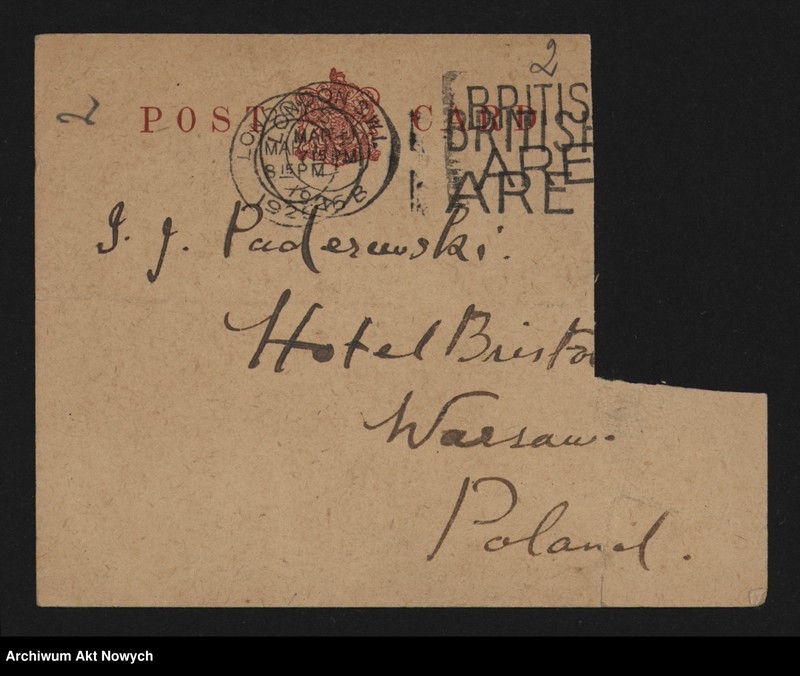 2
2
POST CARD
LONDON S.W.1.
MAR
MAR
8 15 PM
1926 B
BRITIS
BRITISH
ARE
ARE
I. J. Paderewski.
Hotel Bristo
Warsaw.
Poland.
Archiwum Akt Nowych